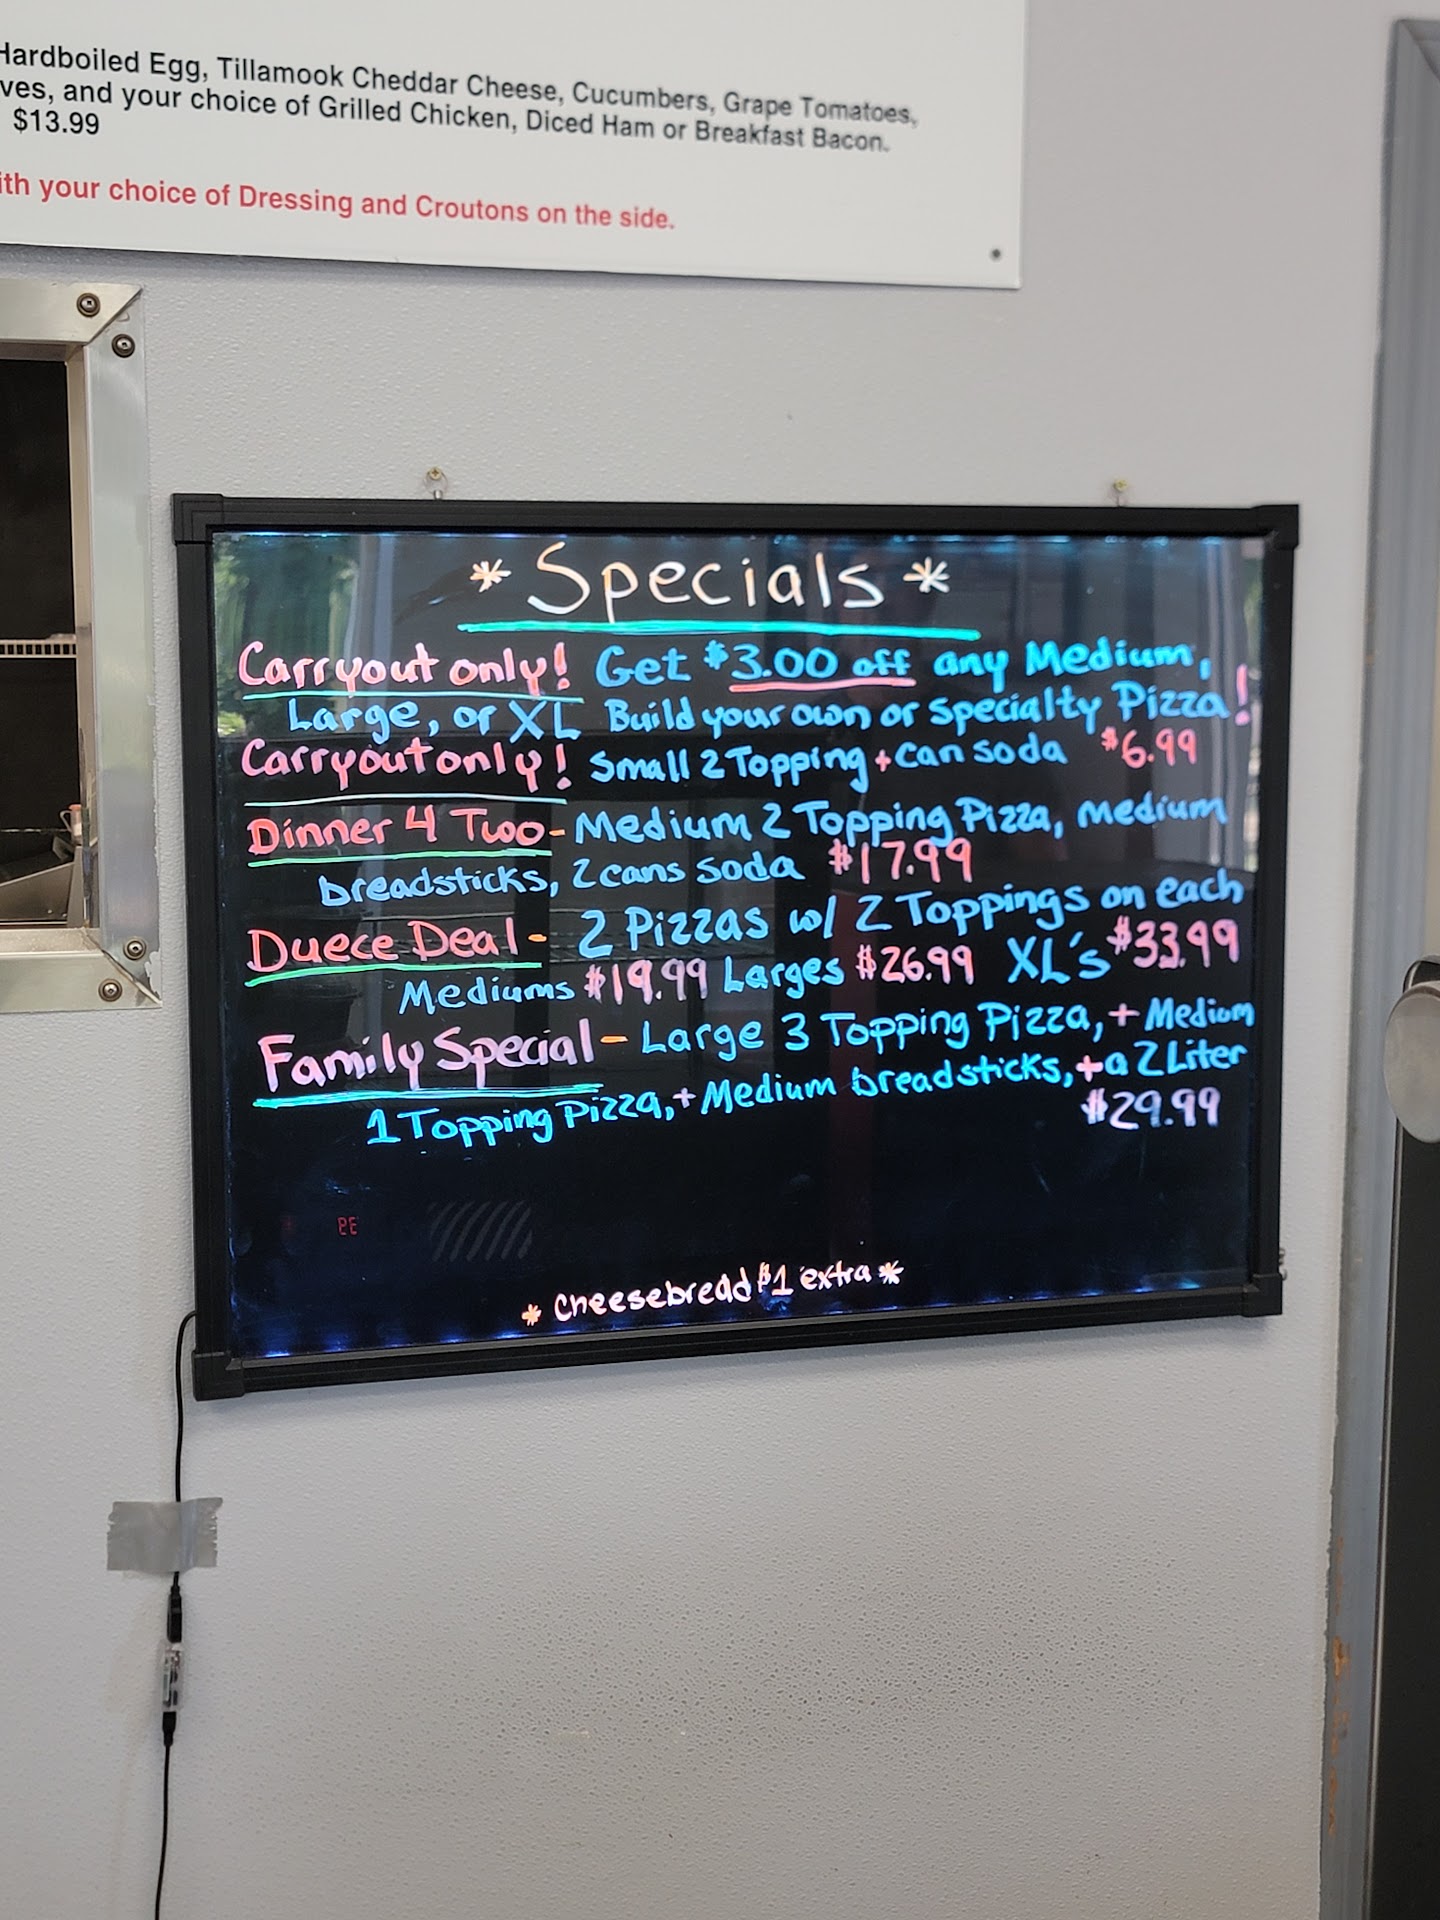 Hardboiled Egg, Tillamook Cheddar Cheese, Cucumbers, Grape Tomatoes,
ves, and your choice of Grilled Chicken, Diced Ham or Breakfast Bacon.
$13.99
ith your choice of Dressing and Croutons on the side.
* Specials *
Carryout only! Get $3.00 off any Medium,
Large, or XL Build your own or Specialty Pizza!
Carryout only! Small 2 Topping + Can soda $6.99
Dinner 4 Two - Medium 2 Topping Pizza, medium
breadsticks, 2 cans soda $17.99
Duece Deal - 2 Pizzas w/ 2 Toppings on each
Mediums $19.99 Larges $26.99 XL's $33.99
Family Special - Large 3 Topping Pizza, + Medium
1 Topping Pizza, + Medium breadsticks, + a 2 Liter
$29.99
* Cheesebread $1 extra *